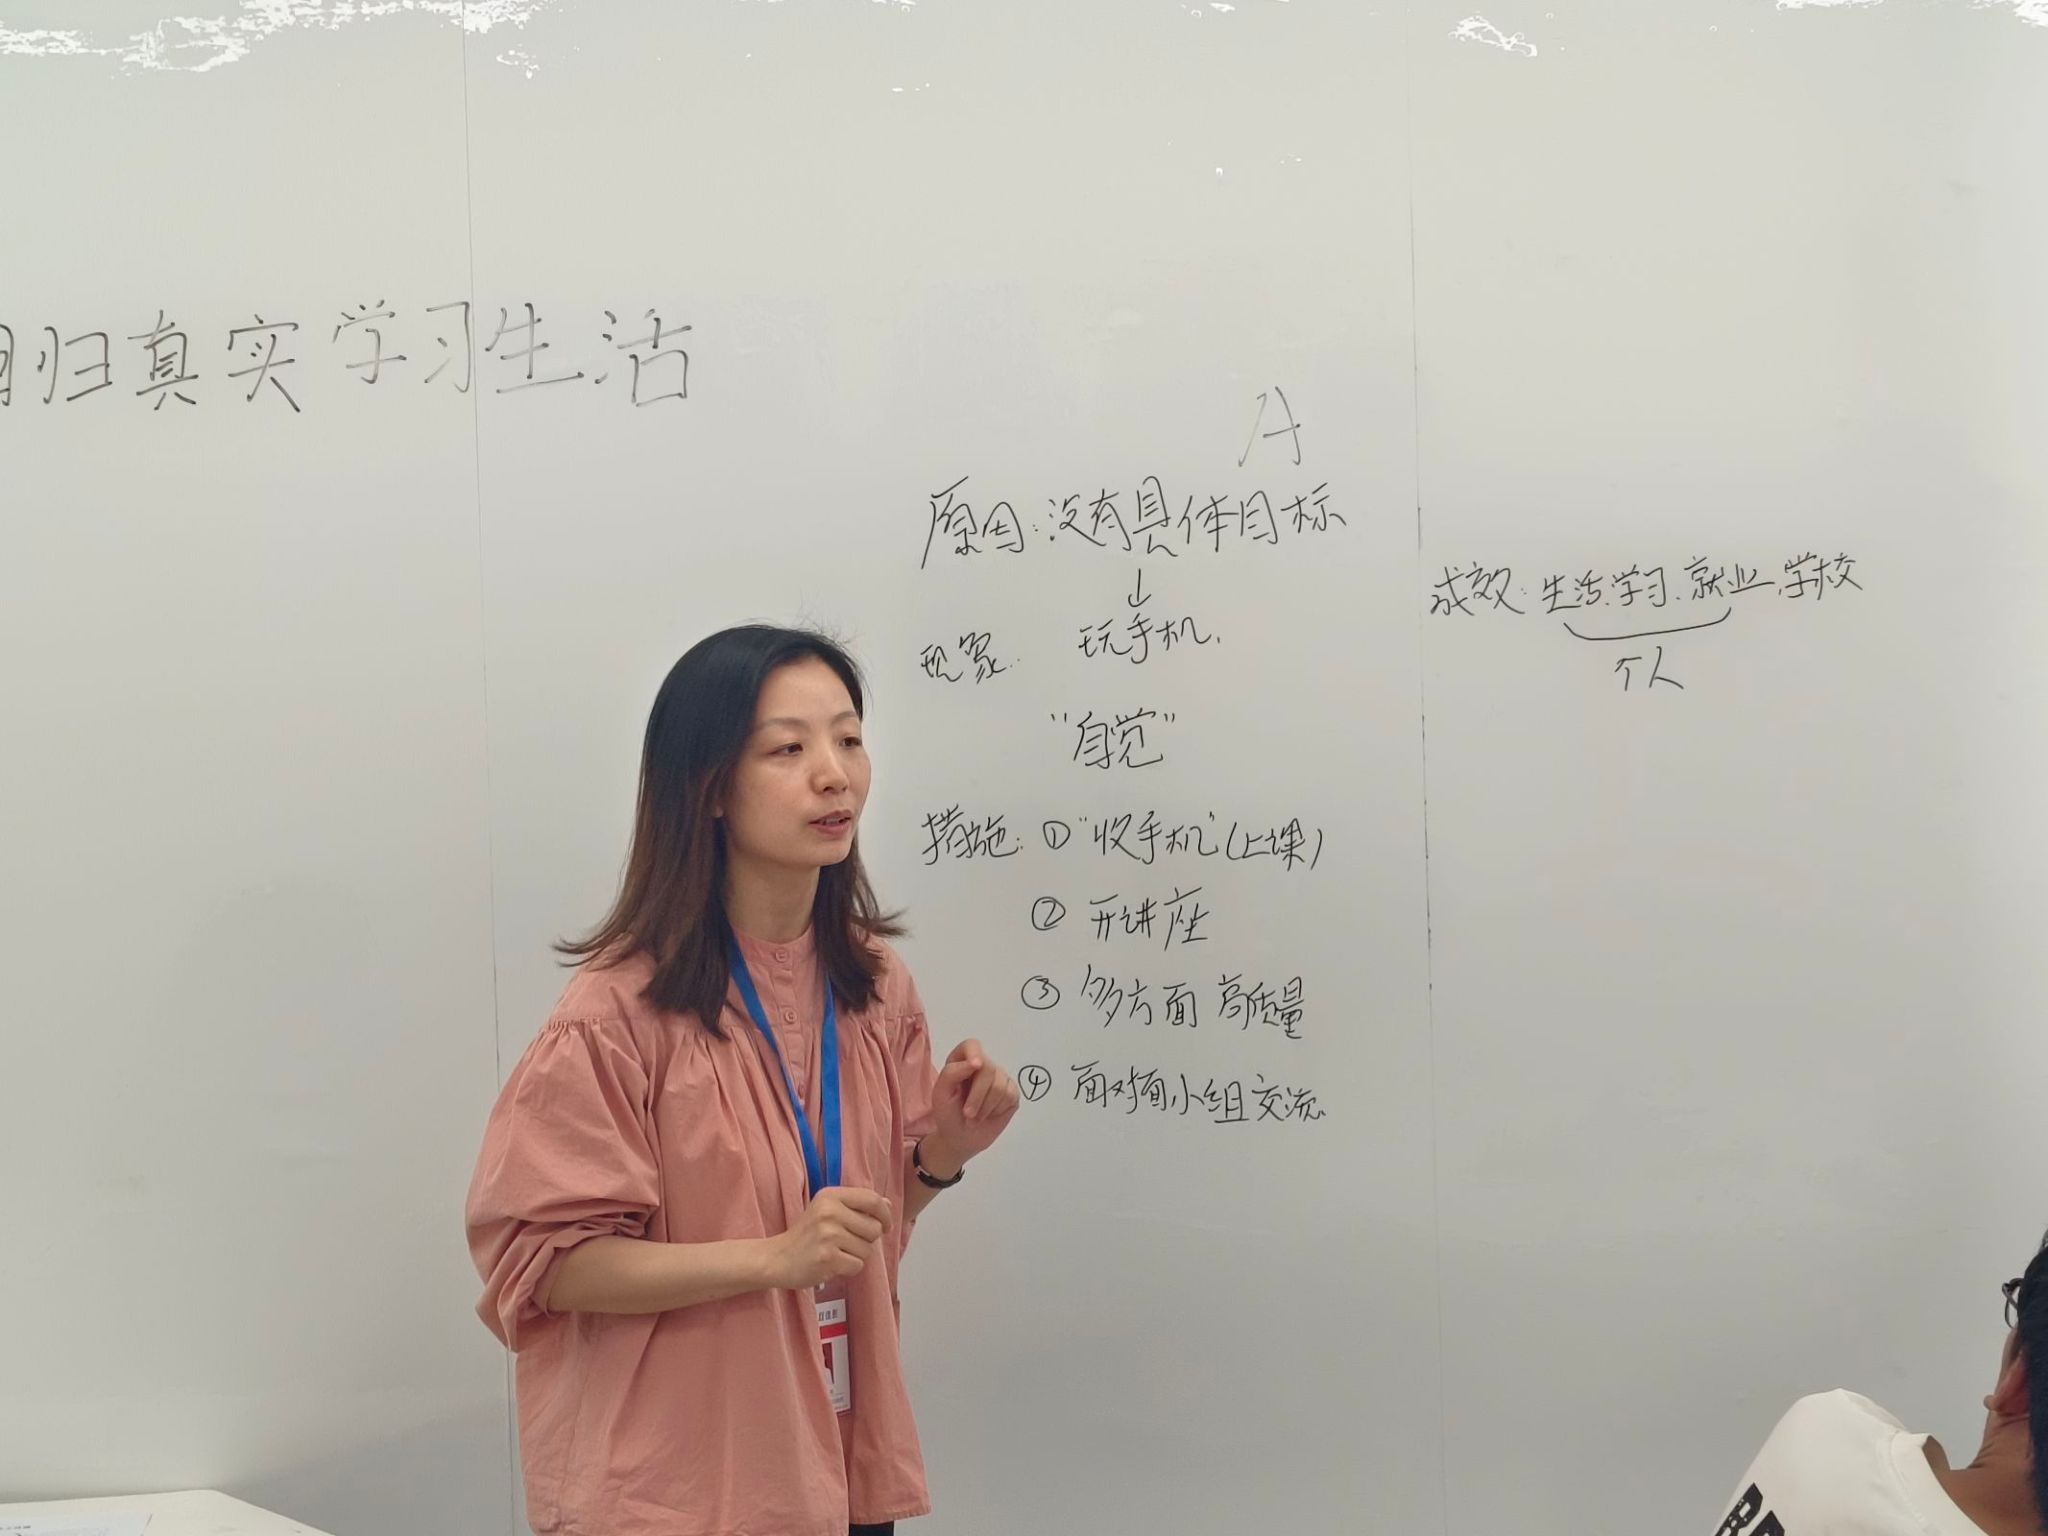 归真实学习生活
A
原因:没有具体目标
↓
现象: 玩手机.
"自觉"
措施: ①"收手机"(上课)
② 开讲座
③ 多方面 高质量
④ 面对面小组交流
成效: 生活、学习、就业、学校
个人